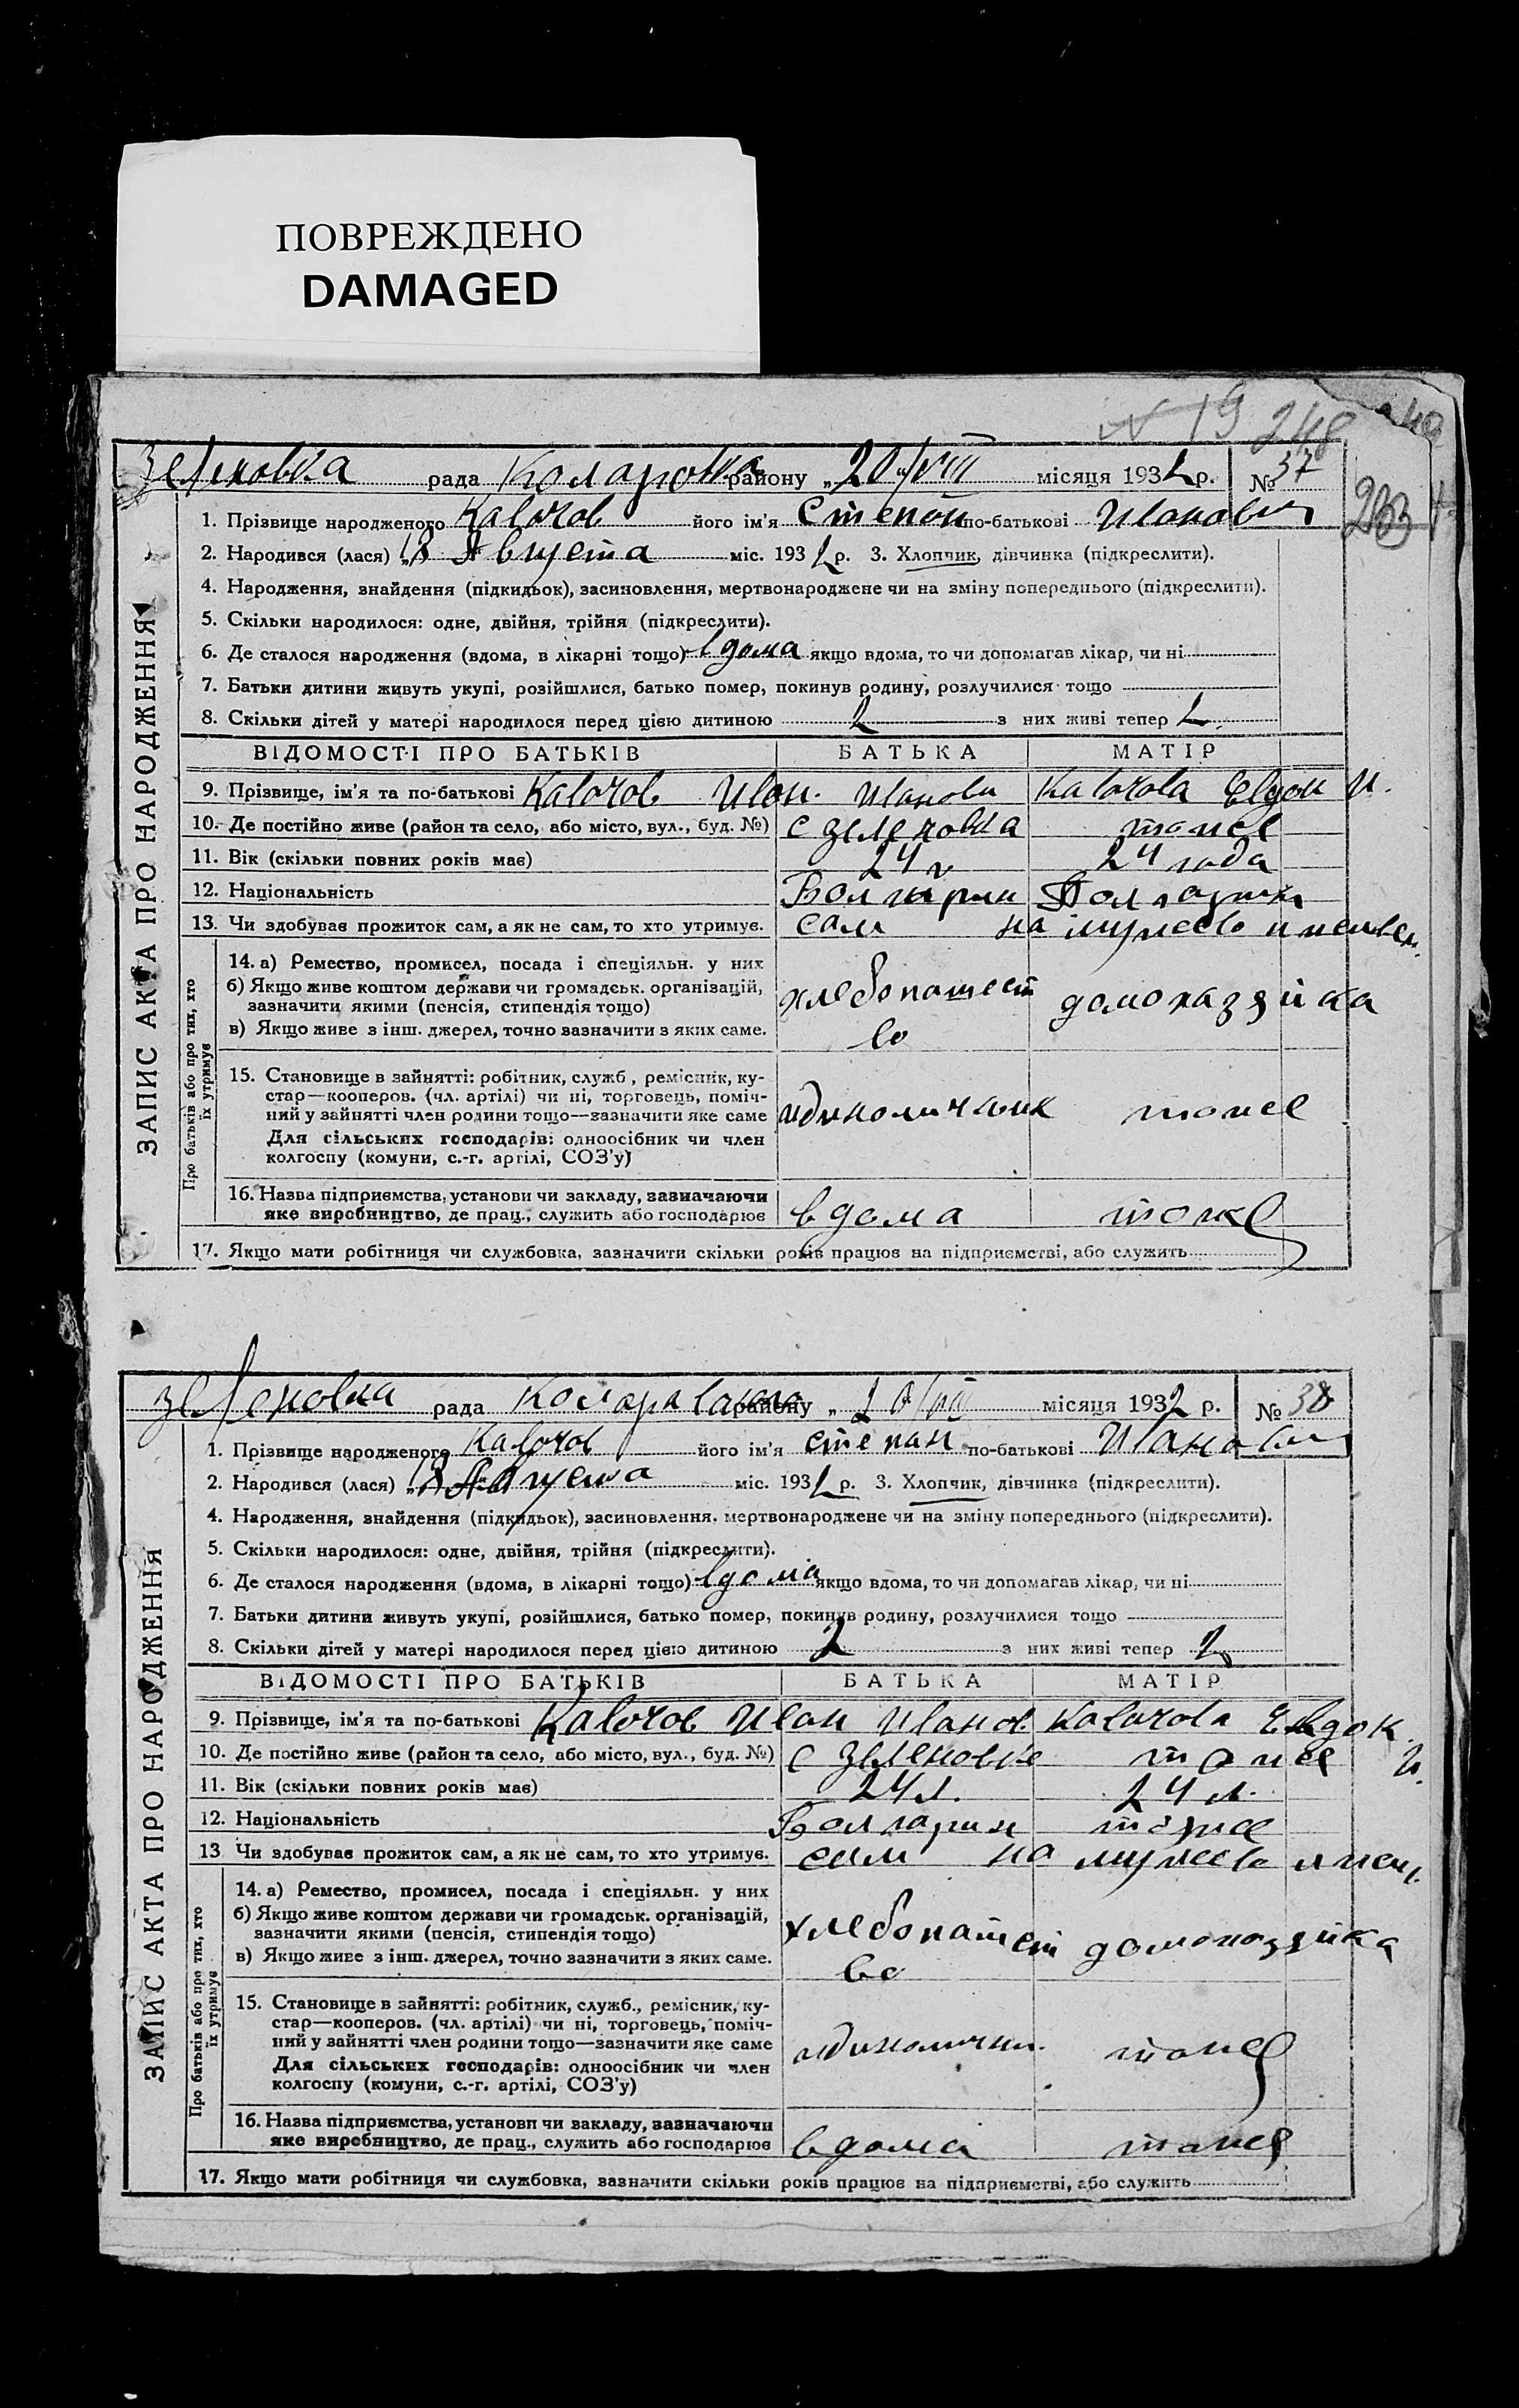 ПОВРЕЖДЕНО
DAMAGED
№ 19 248
Зеленовка рада Коларовка району „20/VIII місяця 1932 р. № 37
233
ЗАПИС АКТА ПРО НАРОДЖЕННЯ
1. Прізвище народженого Кавочов його ім'я Степан по-батькові Иванович
2. Народився (лася) „18 Августа міс. 1932 р. 3. Хлопчик, дівчинка (підкреслити).
4. Народження, знайдення (підкидьок), засиновлення, мертвонароджене чи на зміну попереднього (підкреслити).
5. Скільки народилося: одне, двійня, трійня (підкреслити).
6. Де сталося народження (вдома, в лікарні тощо) вдома якщо вдома, то чи допомагав лікар, чи ні
7. Батьки дитини живуть укупі, розійшлися, батько помер, покинув родину, розлучилися тощо
8. Скільки дітей у матері народилося перед цією дитиною 2 з них живі тепер 2
ВІДОМОСТІ ПРО БАТЬКІВ БАТЬКА МАТІР
9. Прізвище, ім'я та по-батькові Кавочов Иван. Иванови Кавочова Евдок И.
10. Де постійно живе (район та село, або місто, вул., буд. №) с Зеленовка тоже
11. Вік (скільки повних років має) 24 г 24 года
12. Національність Болгарин Болгарин
13. Чи здобуває прожиток сам, а як не сам, то хто утримує. сам на мужево
Про батьків або про тих, хто їх утримує
14. а) Ремество, промисел, посада і спеціяльн. у них
б) Якщо живе коштом держави чи громадськ. організацій,
зазначити якими (пенсія, стипендія тощо)
в) Якщо живе з інш. джерел, точно зазначити з яких саме.
хлебопашест домохазяйка
во
15. Становище в зайнятті: робітник, служб, ремісник, ку-
стар—кооперов. (чл. артілі) чи ні, торговець, поміч-
ний у зайнятті член родини тощо—зазначити яке саме
Для сільських господарів: одноосібник чи член
колгоспу (комуни, с.-г. артілі, СОЗ'у)
идиноличник тоже
16. Назва підприємства, установи чи закладу, зазначаючи
яке виробництво, де прац., служить або господарює вдома тоже
17. Якщо мати робітниця чи службовка, зазначити скільки років працює на підприємстві, або служить
Зеленовка рада Коларовка району „20/VIII місяця 1932 р. № 38
ЗАПИС АКТА ПРО НАРОДЖЕННЯ
1. Прізвище народженого Кавочов його ім'я степан по-батькові Иванович
2. Народився (лася) „18 Августа міс. 1932 р. 3. Хлопчик, дівчинка (підкреслити).
4. Народження, знайдення (підкидьок), засиновлення, мертвонароджене чи на зміну попереднього (підкреслити).
5. Скільки народилося: одне, двійня, трійня (підкреслити).
6. Де сталося народження (вдома, в лікарні тощо) вдома якщо вдома, то чи допомагав лікар, чи ні
7. Батьки дитини живуть укупі, розійшлися, батько помер, покинув родину, розлучилися тощо
8. Скільки дітей у матері народилося перед цією дитиною 2 з них живі тепер 2
ВІДОМОСТІ ПРО БАТЬКІВ БАТЬКА МАТІР
9. Прізвище, ім'я та по-батькові Кавочов Иван Иванов. Кавочова Евдок. И.
10. Де постійно живе (район та село, або місто, вул., буд. №) с Зеленовке тоже
11. Вік (скільки повних років має) 24 л. 24 л.
12. Національність Болгарин тоже
13. Чи здобуває прожиток сам, а як не сам, то хто утримує. сам на мужево
Про батьків або про тих, хто їх утримує
14. а) Ремество, промисел, посада і спеціяльн. у них
б) Якщо живе коштом держави чи громадськ. організацій,
зазначити якими (пенсія, стипендія тощо)
в) Якщо живе з інш. джерел, точно зазначити з яких саме.
хлебопашест домохазяйка
во
15. Становище в зайнятті: робітник, служб., ремісник, ку-
стар—кооперов. (чл. артілі) чи ні, торговець, поміч-
ний у зайнятті член родини тощо—зазначити яке саме
Для сільських господарів: одноосібник чи член
колгоспу (комуни, с.-г. артілі, СОЗ'у)
идиноличник. тоже
16. Назва підприємства, установи чи закладу, зазначаючи
яке виробництво, де прац., служить або господарює вдома тоже
17. Якщо мати робітниця чи службовка, зазначити скільки років працює на підприємстві, або служить